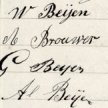 W Beijen
A Brouwer
G Beijen
A. Beije